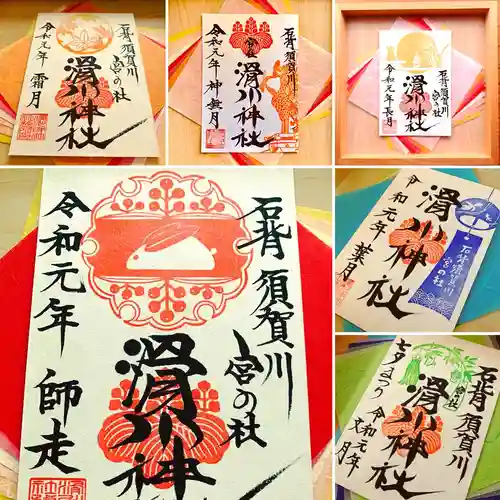 石背 須賀川
宮の社
滑川神社
令和元年 霜月
石背 須賀川
宮の社
滑川神社
令和元年 神無月
石背 須賀川
宮の社
滑川神社
令和元年 長月
石背 須賀川
宮の社
滑川神
令和元年 師走
石背 須賀川
宮の社
滑川神社
令和元年 葉月
石背 須賀川
滑川神社
七夕まつり 令和元年
文月